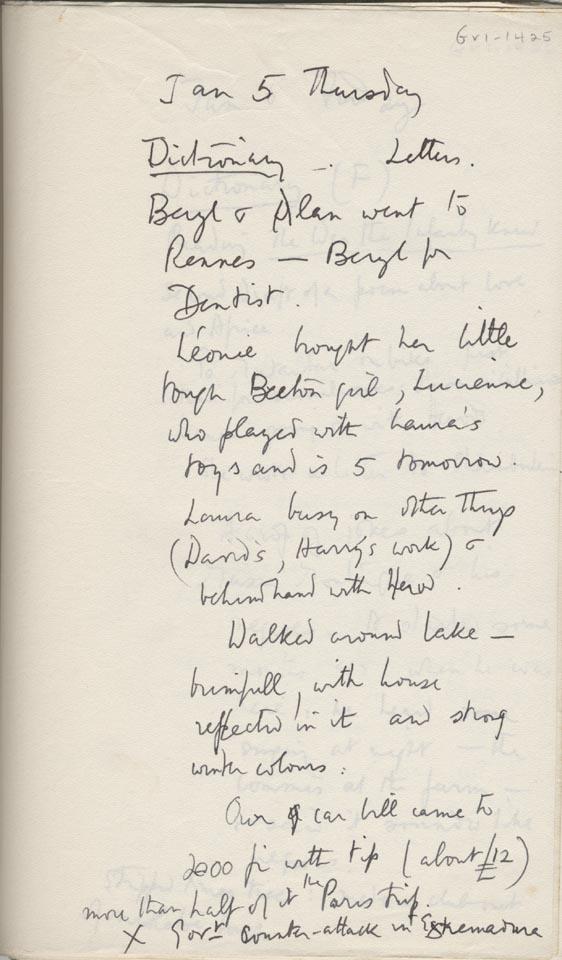 Gv1-1425
Jan 5 Thursday
Dictionary -. Letters.
Beryl & Alan went to
Rennes — Beryl for
Dentist.
Léonie brought her little
tough Breton girl, Lucienne,
who played with Laura's
toys and is 5 tomorrow.
Laura busy on other things
(David's, Harry's work) &
behindhand with Herod.
Walked around lake —
brimfull, with house
reflected in it and strong
winter colours.
Our car bill came to
2000 fr with tip (about £12)
more than half of it the Paris trip.
X Govt counter-attack in Extremadura